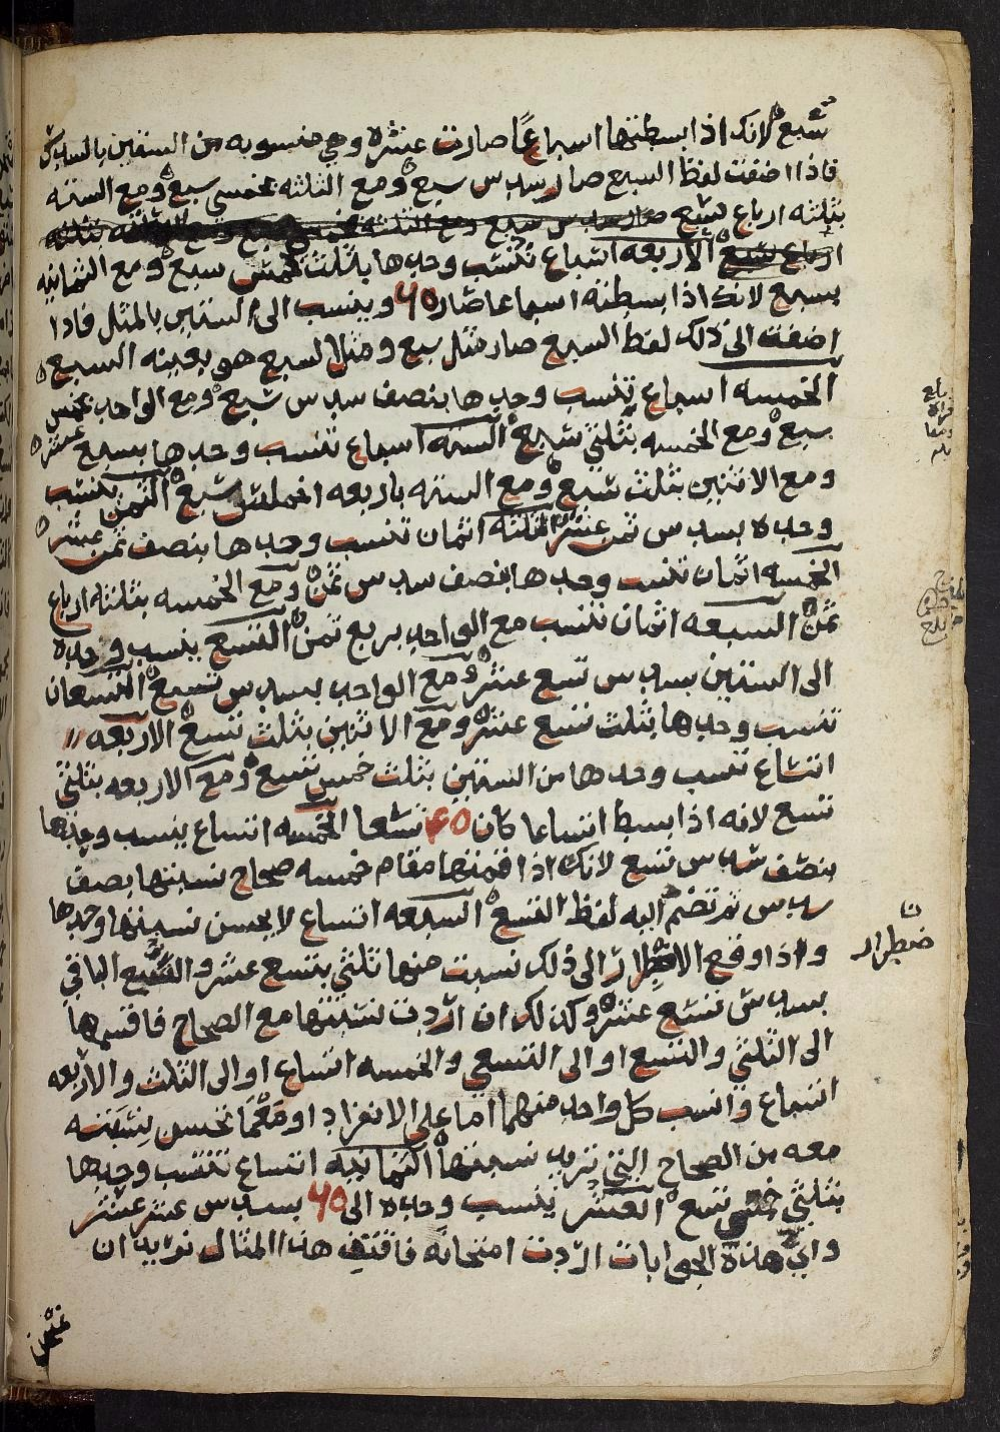 سبع لانك اذا بسطتها اسباعًا صارت عشره وهي منسوبه من الستين بالسدس
فاذا اضفت لفظ السبع صار سدس سبع ومع الثلثه بخمسي سبع ومع السته
بثلثه ارباع سبع صار سدس سبع ومع الثلثه بخمسي سبع ومع السته بثلثه
ارباع سبع الاربعه اسباع تنسب وحدها بثلث خمس سبع ومع الثمانيه
بسبع لانك اذا بسطته اسباعا صار ٦٥ وينسب الى الستين بالمثل فاذا
اضفت الى ذلك لفظ السبع صار مثل سبع ومثل السبع هو بعينه السبع
الخمسه اسباع تنسب وحدها بنصف سدس سبع ومع الواحد بخمس
سبع ومع الخمسه بثلثي سبع السته اسباع تنسب وحدها بسبع عشر
ومع الاثنين بثلث سبع ومع السته باربعه اخماس سبع الثمن ينسب
وحده بسدس ثمن عشر الثلثه اثمان تنسب وحدها بنصف ثمن عشر
الخمسه اثمان تنسب وحدها بنصف سدس ثمن ومع الخمسه بثلثه ارباع
ثمن السبعه اثمان تنسب مع الواحد بربع ثمن التسع ينسب وحده
الى الستين بسدس تسع عشر ومع الواحد بسدس تسع التسعان
تنسب وحدها بثلث تسع عشر ومع الاثنين بثلث تسع الاربعه
اتساع تنسب وحدها من الستين بثلث خمس تسع ومع الاربعه بثلثي
تسع لانه اذا بسط اتساعا كان ٤٥ تسعا الخمسه اتساع ينسب وحدها
بنصف سدس تسع لانك اذا اقمتها مقام خمسه صحاح نسبتها بصف
سدس ثم تضم اليه لفظ التسع السبعه اتساع لا يحسن نسبتها وحدها
واذا وقع الاضطرار الى ذلك نسبت منها ثلثي بتسع عشر والتسع الباقي
بسدس تسع عشر وكذلك ان اردت نسبتها مع الصحاح فاقسمها
الى الثلثي والتسع او الى التسعي والخمسه اتساع او الى الثلث والاربعه
اتساع وانسب كل واحد منهما اما على الانفراد او مع ما تحسن نسبته
معه من الصحاح التي تريد نسبتها الثمانيه اتساع تنسب وحدها
بثلثي خمس تسع العشر ينسب وحده الى ٦٥ بسدس عشر عشر
واي هذه الجوابات اردت امتحانه فاقتف هذا المثال نريد ان
ضطرار